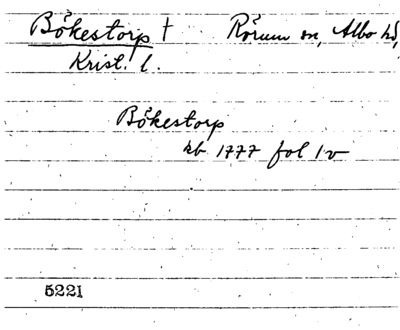 Bökestorp † Rörum sn, Albo hd,
Krist. l.
Bökestorp
kb 1777 fol 1v
5221